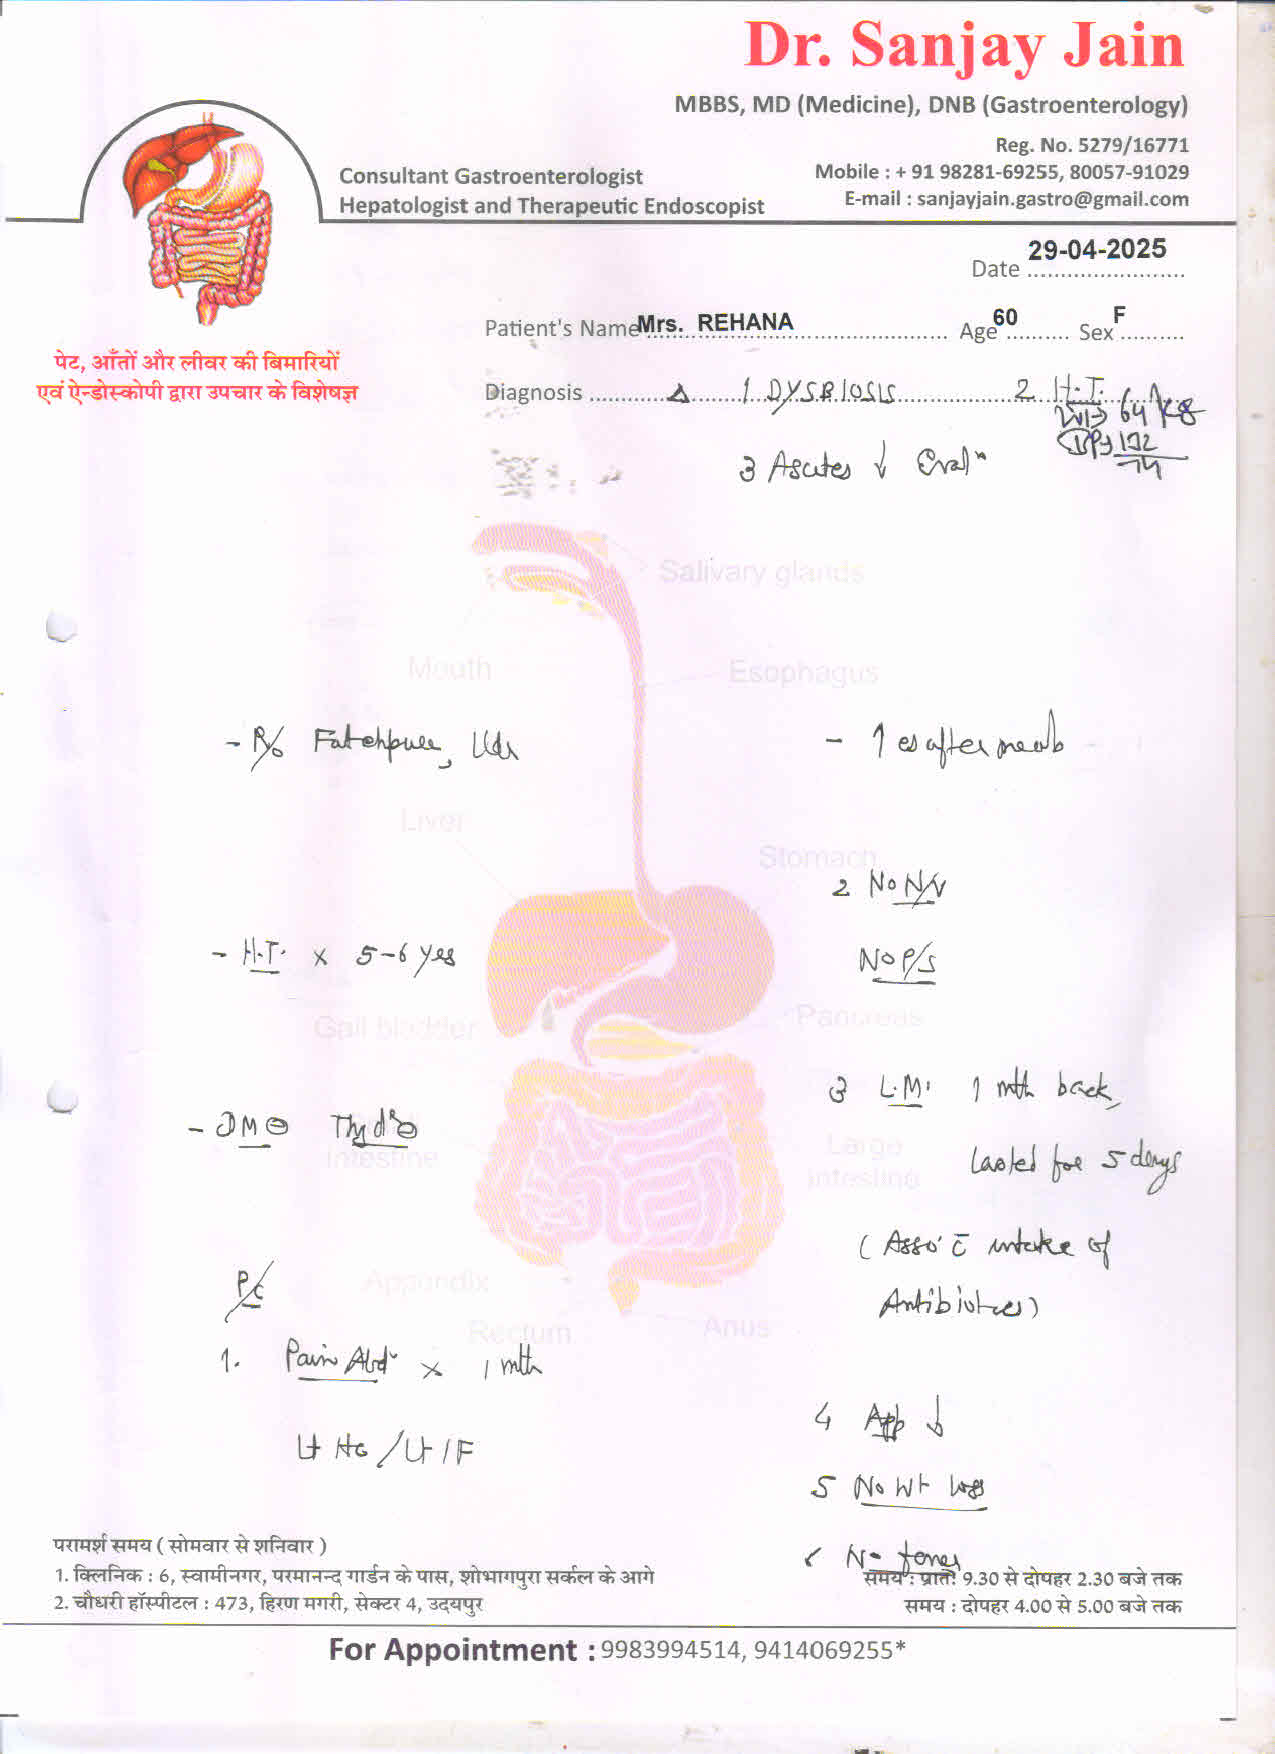 Dr. Sanjay Jain
MBBS, MD (Medicine), DNB (Gastroenterology)
Reg. No. 5279/16771
Mobile : + 91 98281-69255, 80057-91029
E-mail : sanjayjain.gastro@gmail.com
Consultant Gastroenterologist
Hepatologist and Therapeutic Endoscopist
पेट, आँतों और लीवर की बिमारियों
एवं ऐन्डोस्कोपी द्वारा उपचार के विशेषज्ञ
Date 29-04-2025
Patient's Name Mrs. REHANA Age 60 Sex F
Diagnosis Δ 1 DYSBIOSIS 2 H.T.
Wt 64 kg
BP 132
74
3 Ascites ↓ Evalⁿ
Salivary glands
Mouth
Esophagus
Liver
Stomach
Gall bladder
Pancreas
Intestine
Large
Intestine
Appendix
Rectum
Anus
- R/o Fatehpura, Udr
- H.T. x 5-6 yrs
- DM ⊖ Thyd ⊖
P/C
1. Pain Abd x 1 mth
Lt HC / Lt IF
- ↑es after meals
2 No N/V
No P/S
3 L.M. 1 mth back,
Lasted for 5 days
( Asso c̄ intake of
Antibiotics)
4 App ↓
5 No Wt loss
No fever
परामर्श समय ( सोमवार से शनिवार )
1. क्लिनिक : 6, स्वामीनगर, परमानन्द गार्डन के पास, शोभागपुरा सर्कल के आगे
समय : प्रातः 9.30 से दोपहर 2.30 बजे तक
2. चौधरी हॉस्पीटल : 473, हिरण मगरी, सेक्टर 4, उदयपुर
समय : दोपहर 4.00 से 5.00 बजे तक
For Appointment : 9983994514, 9414069255*